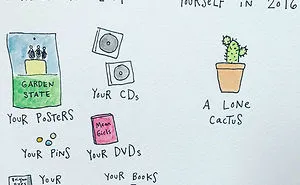 YOURSELF IN 2016
GARDEN
STATE
YOUR POSTERS
YOUR CDs
A LONE
CACTUS
Mean
Girls
YOUR PINS
YOUR DVDs
YOUR
YOUR BOOKS